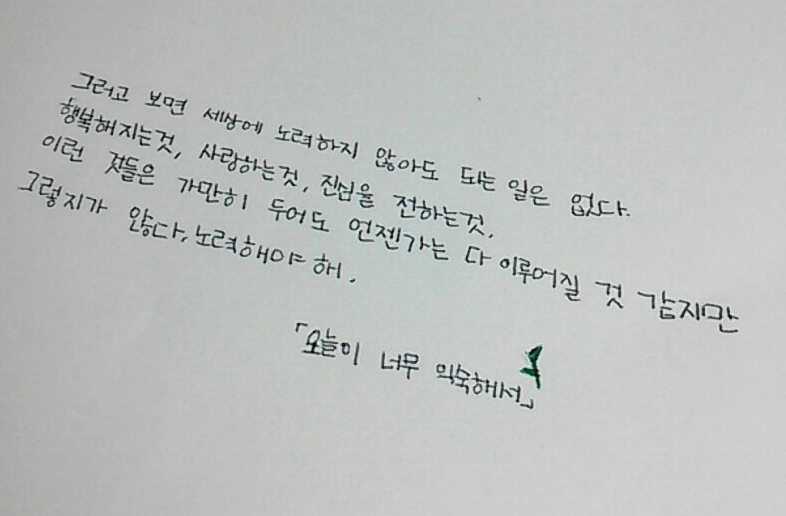 그러고 보면 세상에 노력하지 않아도 되는 일은 없다.
행복해지는것, 사랑하는것, 진심을 전하는것.
이런 것들은 가만히 두어도 언젠가는 다 이루어질 것 같지만
그렇지가 않다, 노력해야 해.
「오늘이 너무 익숙해서」